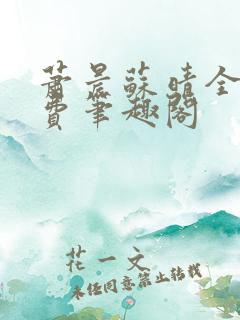 萧景苏晴全
费笔趣阁
花一文
未经同意禁止转载